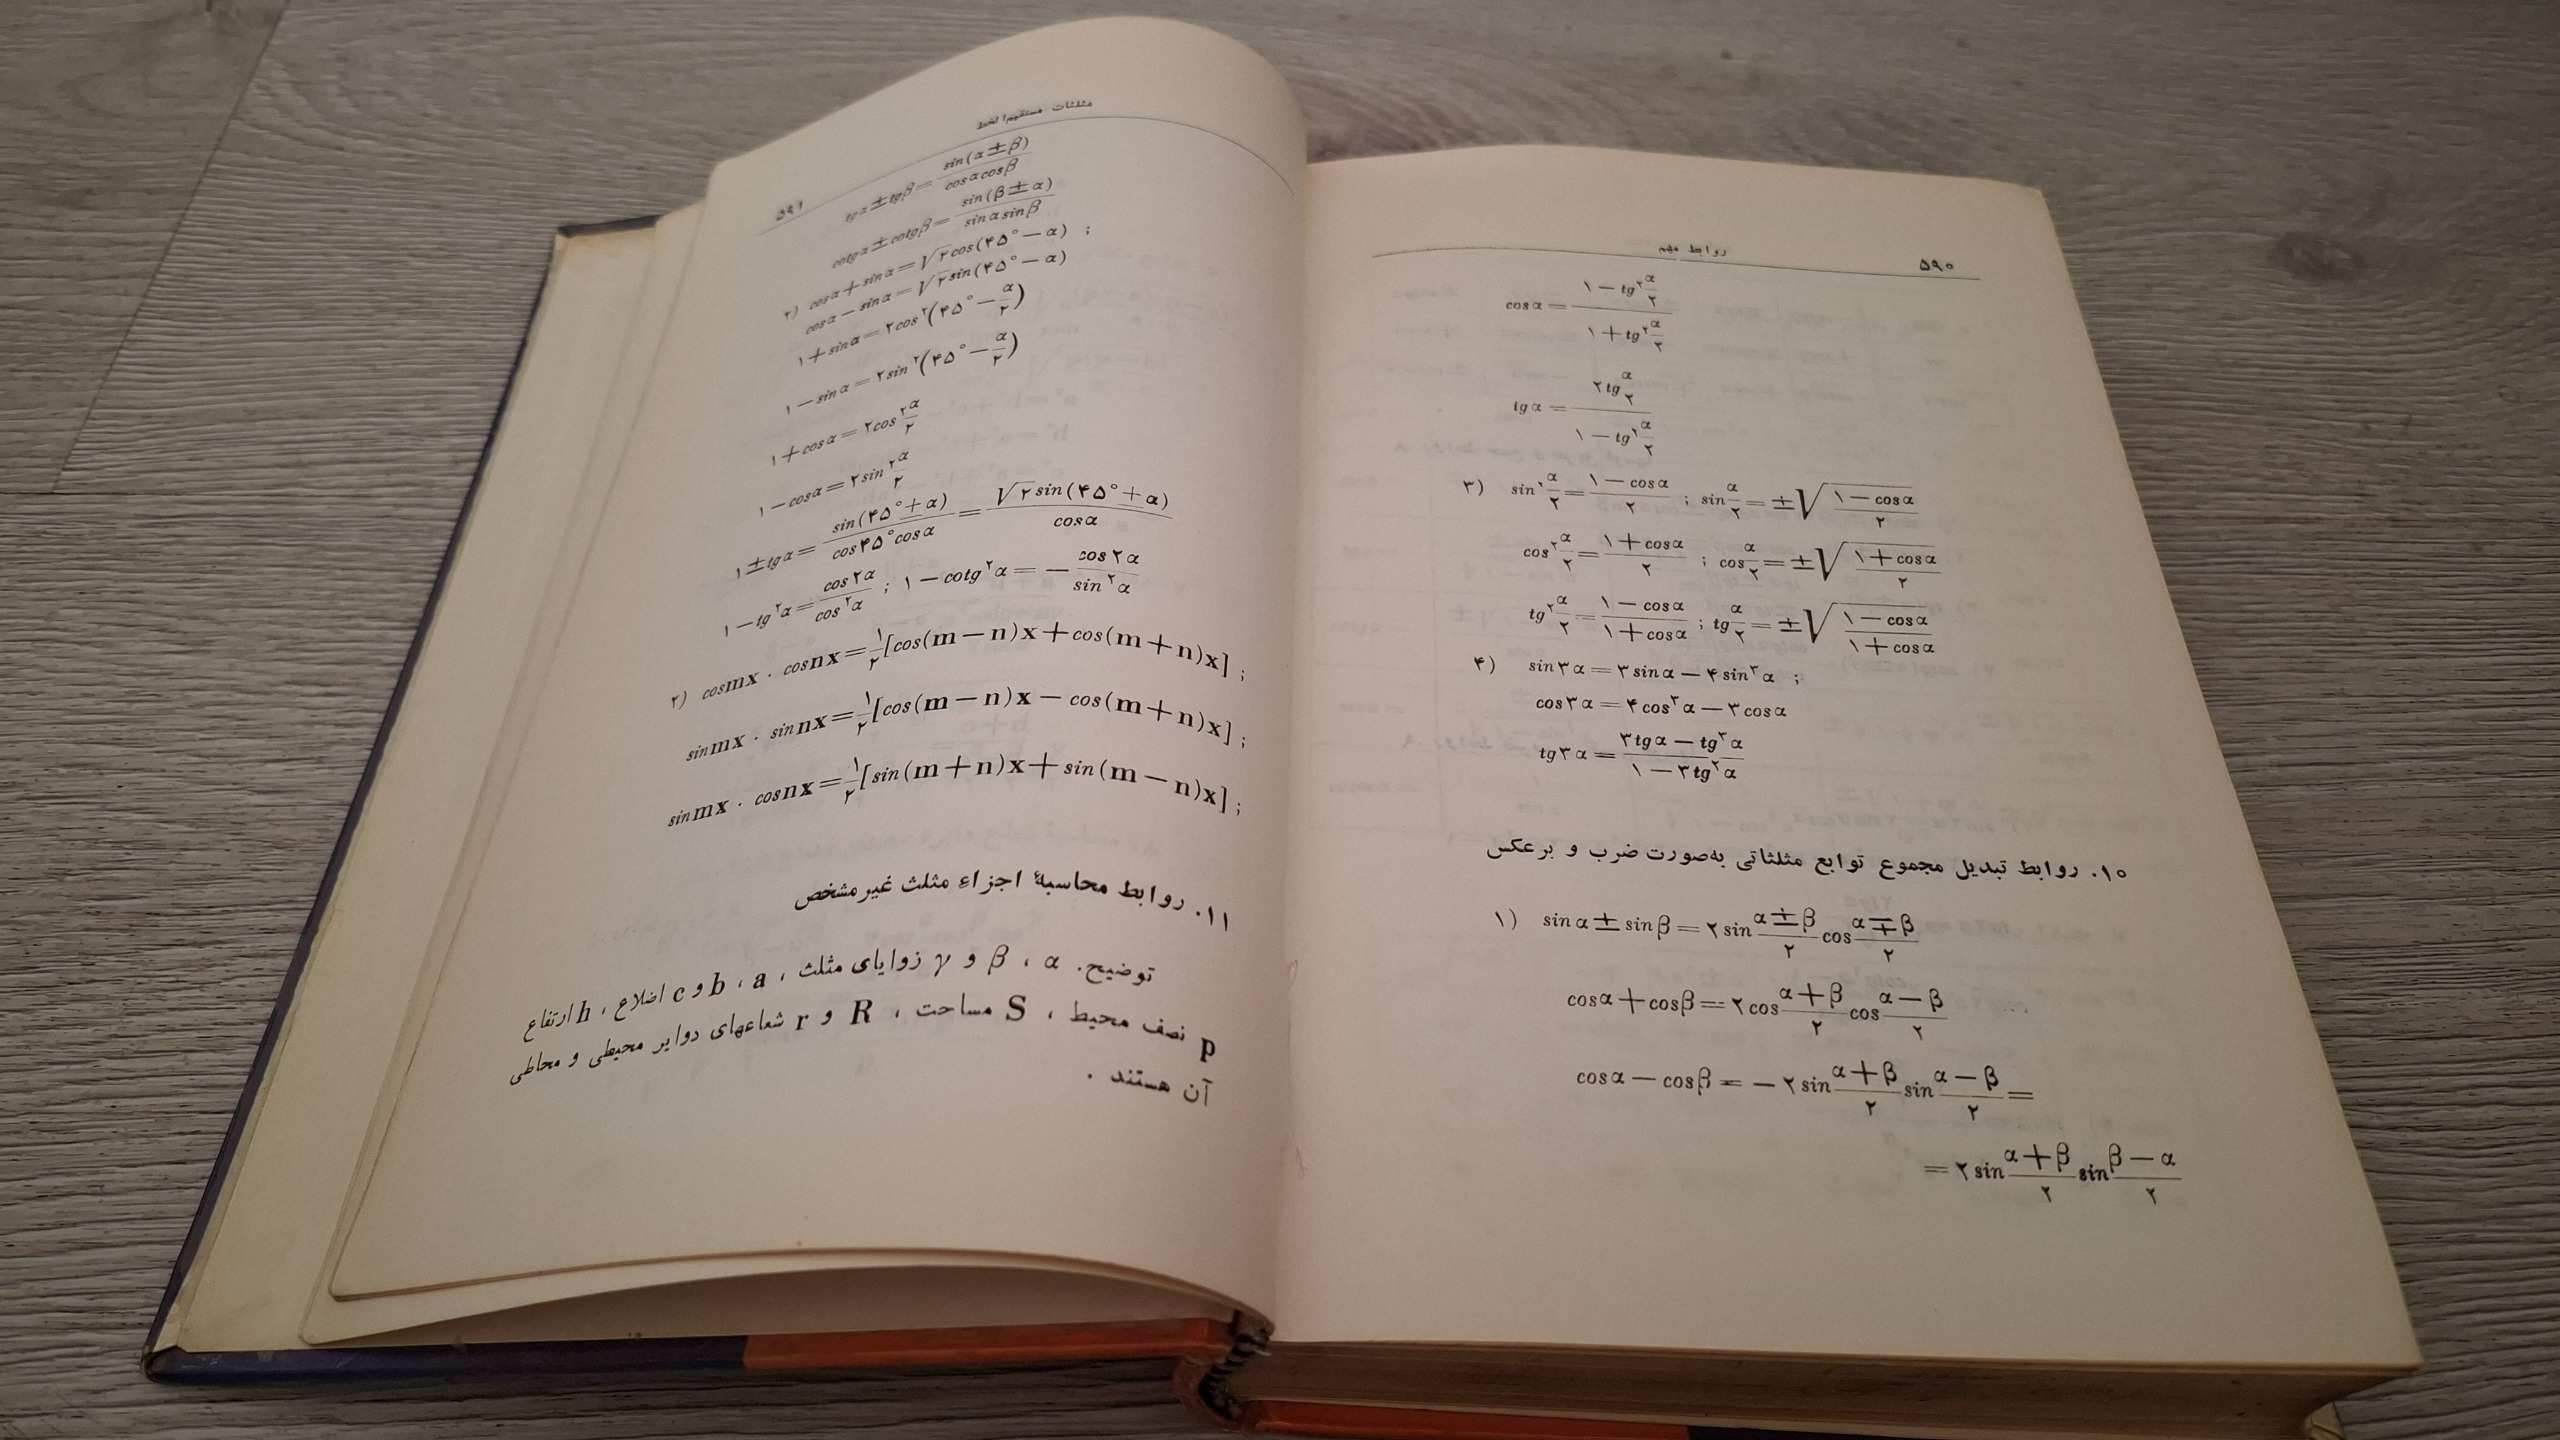 روابط مهم ۵۹۰
cosα = (۱ − tg²α/۲) / (۱ + tg²α/۲)
tgα = (۲tg α/۲) / (۱ − tg²α/۲)
۳) sin²α/۲ = (۱ − cosα)/۲ ; sin α/۲ = ±√((۱ − cosα)/۲)
cos²α/۲ = (۱ + cosα)/۲ ; cos α/۲ = ±√((۱ + cosα)/۲)
tg²α/۲ = (۱ − cosα)/(۱ + cosα) ; tg α/۲ = ±√((۱ − cosα)/(۱ + cosα))
۴) sin۳α = ۳sinα − ۴sin³α ;
cos۳α = ۴cos³α − ۳cosα
tg۳α = (۳tgα − tg³α)/(۱ − ۳tg²α)
۱۰. روابط تبدیل مجموع توابع مثلثاتی به‌صورت ضرب و برعکس
۱) sinα ± sinβ = ۲sin (α ± β)/۲ cos (α ∓ β)/۲
cosα + cosβ = ۲cos (α + β)/۲ cos (α − β)/۲
cosα − cosβ = −۲sin (α + β)/۲ sin (α − β)/۲ =
= ۲sin (α + β)/۲ sin (β − α)/۲
مثلثات مستقیم‌الخط ۵۹۱
tgα ± tgβ = sin(α ± β)/(cosα cosβ)
cotgα ± cotgβ = sin(β ± α)/(sinα sinβ)
۲) cosα + sinα = √۲ cos(۴۵° − α) ;
cosα − sinα = √۲ sin(۴۵° − α)
۱ + sinα = ۲cos²(۴۵° − α/۲)
۱ − sinα = ۲sin²(۴۵° − α/۲)
۱ + cosα = ۲cos²α/۲
۱ − cosα = ۲sin²α/۲
۱ ± tgα = sin(۴۵° ± α)/(cos۴۵° cosα) = √۲ sin(۴۵° ± α)/cosα
۱ − tg²α = cos۲α/cos²α ; ۱ − cotg²α = − cos۲α/sin²α
۲) cosmx · cosnx = ۱/۲[cos(m − n)x + cos(m + n)x] ;
sinmx · sinnx = ۱/۲[cos(m − n)x − cos(m + n)x] ;
sinmx · cosnx = ۱/۲[sin(m + n)x + sin(m − n)x] ;
۱۱. روابط محاسبهٔ اجزاءِ مثلث غیرمشخص
توضیح. α ، β و γ زوایای مثلث ، a ، b و c اضلاع ، h ارتفاع
p نصف محیط ، S مساحت ، R و r شعاعهای دوایر محیطی و محاطی
آن هستند .